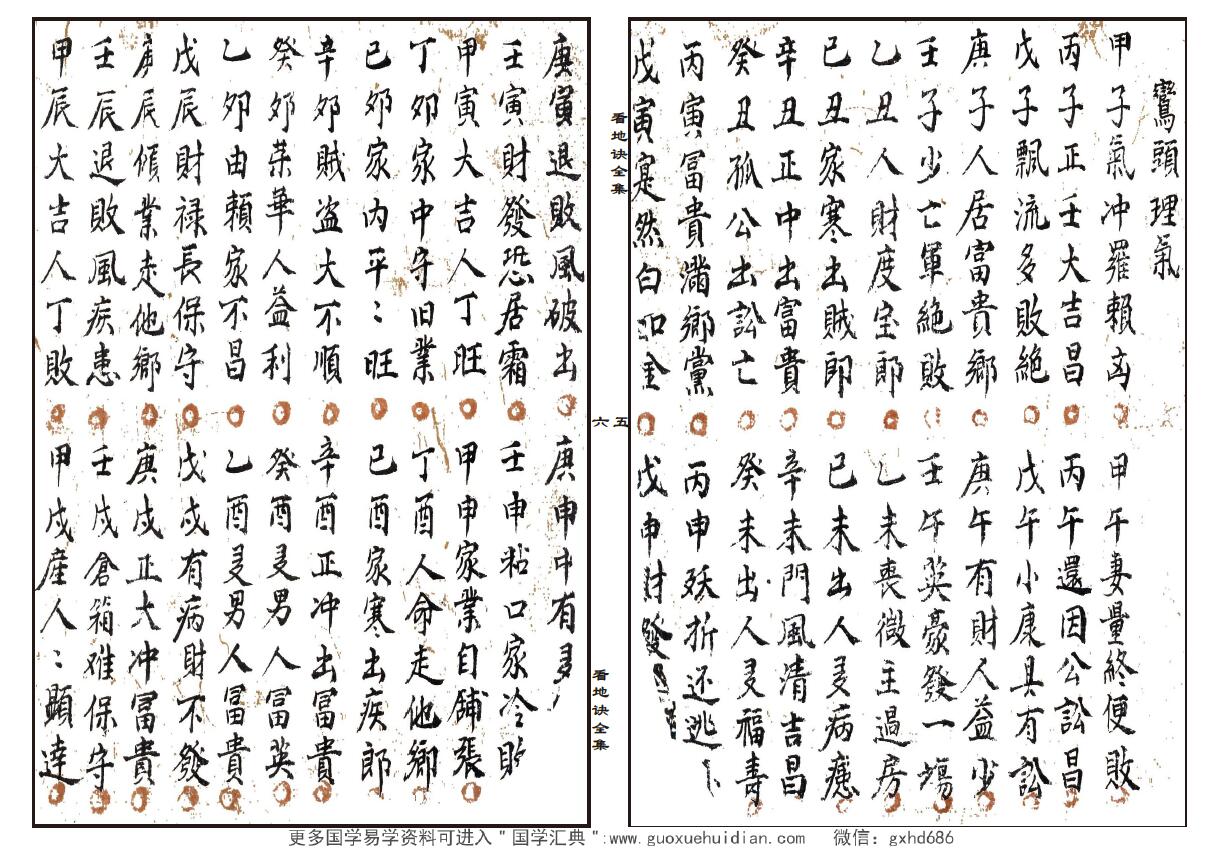 鸞頭理氣
甲子氣冲羅賴凶 甲午妻量終便敗
丙子正壬大吉昌 丙午還因公訟昌
戊子飄流多敗絕 戊午小康具有訟
庚子人居富貴鄉 庚午有財人益少
壬子少亡軍絕敗 壬午英豪發一塲
乙丑人財度宝郎 乙未喪微主過房
已丑家寒出賊郎 已未出人夛病瘧
辛丑正中出富貴 辛未門風清吉昌
癸丑孤公出訟亡 癸未出人夛福壽
丙寅冨貴滿鄉黨 丙申殀折还逃
戊寅寔然白如金 戊申財發
看地诀全集
五六
看地诀全集
庚寅退敗風破出 庚申中有多
壬寅財發恐居霜 壬申粘口家冷貯
甲寅大吉人丁旺 甲申家業自舖張
丁夘家中守旧業 丁酉人命走他鄉
已夘家内平〻旺 已酉家寒出疾郎
辛夘賊盗大不順 辛酉正冲出冨貴
癸夘荣華人益利 癸酉夛男人冨英
乙夘由賴家不昌 乙酉夛男人冨貴
戊辰財禄長保守 戊戌有病財不發
庚辰傾業走他鄉 庚戌正大冲冨貴
壬辰退敗風疾患 壬戌倉箱难保守
甲辰大吉人丁敗 甲戌産人〻顯達
更多国学易学资料可进入＂国学汇典＂:www.guoxuehuidian.com 微信：gxhd686